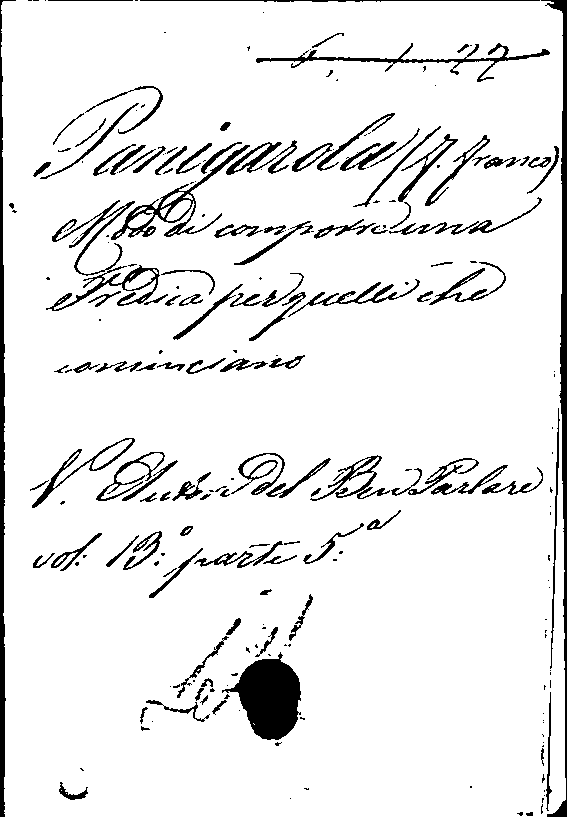 5. 1. 22
Panigarola (F. Franco)
Modo di comporre una
Predica per quelli che
cominciano
V. Autori del Ben Parlare
vol: 13.º parte 5.ª